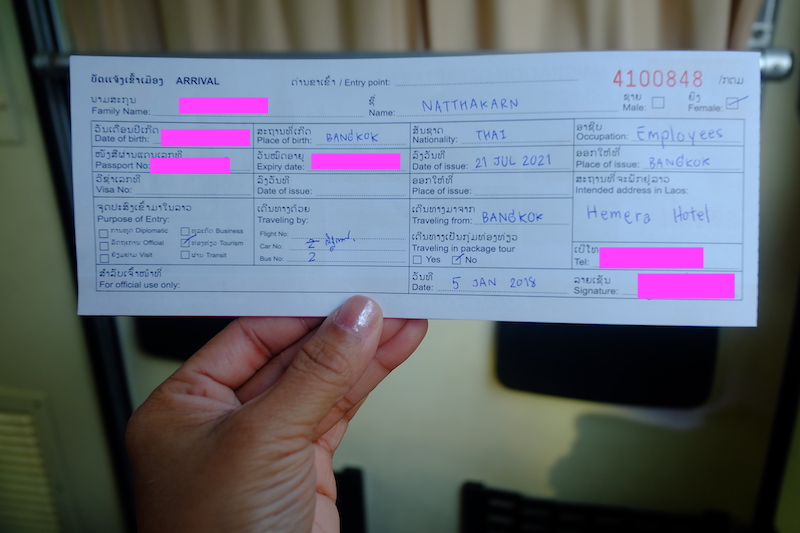 ບັດແຈ້ງເຂົ້າເມືອງ ARRIVAL
ດ່ານຂາເຂົ້າ / Entry point:
4100848 /ກຕມ
ນາມສະກຸນ
Family Name:
ຊື່
Name: NATTHAKARN
ຊາຍ
Male:
ຍິງ
Female:
ວັນເດືອນປີເກີດ
Date of birth:
ສະຖານທີ່ເກີດ
Place of birth: BANGKOK
ສັນຊາດ
Nationality: THAI
ອາຊີບ
Occupation: Employees
ໜັງສືຜ່ານແດນເລກທີ
Passport No:
ວັນໝົດອາຍຸ
Expiry date:
ລົງວັນທີ
Date of issue: 21 JUL 2021
ອອກໃຫ້ທີ່
Place of issue: BANGKOK
ວີຊ່າເລກທີ
Visa No:
ລົງວັນທີ
Date of issue:
ອອກໃຫ້ທີ່
Place of issue:
ສະຖານທີ່ຈະພັກຢູ່ລາວ
Intended address in Laos:
Hemera Hotel
ຈຸດປະສົງເຂົ້າມາໃນລາວ
Purpose of Entry:
ການທູດ Diplomatic
ທຸລະກິດ Business
ລັດຖະການ Official
ທ່ອງທ່ຽວ Tourism
ຢ້ຽມຢາມ Visit
ຜ່ານ Transit
ເດີນທາງດ້ວຍ
Traveling by:
Flight No:
Car No: 2
Bus No: 2
ເດີນທາງມາຈາກ
Traveling from: BANGKOK
ເດີນທາງເປັນກຸ່ມທ່ອງທ່ຽວ
Traveling in package tour
Yes No
ເບີໂທ
Tel:
ສຳລັບເຈົ້າໜ້າທີ່
For official use only:
ວັນທີ
Date: 5 JAN 2018
ລາຍເຊັນ
Signature: